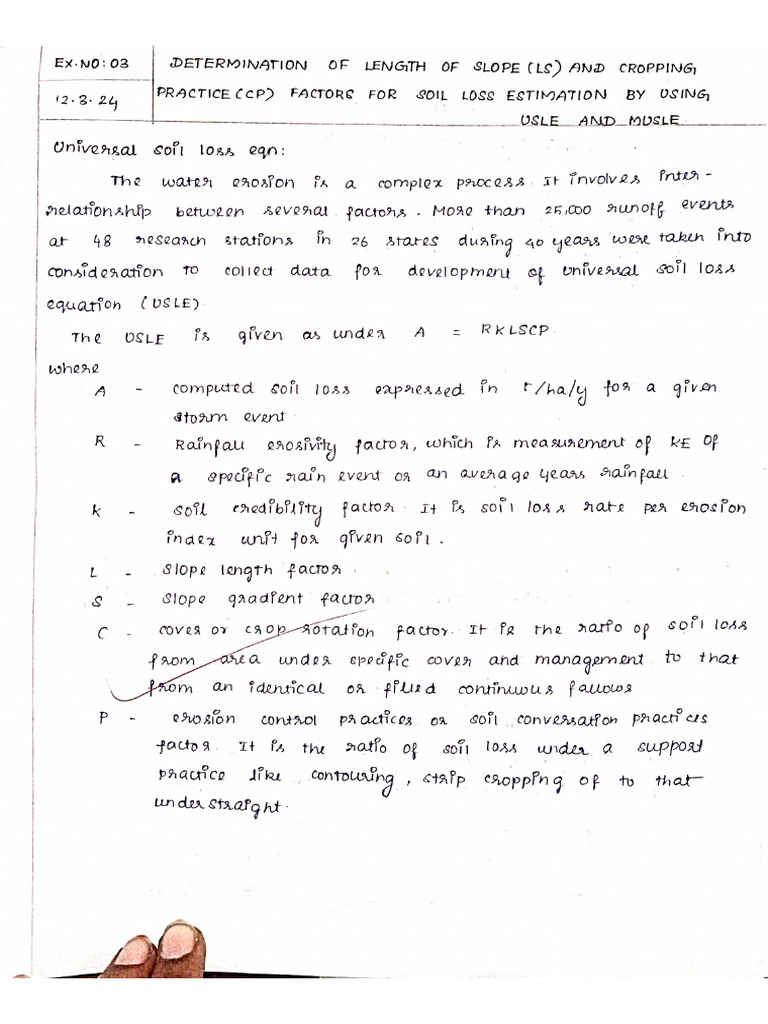 EX.NO: 03
12.3.24
DETERMINATION OF LENGTH OF SLOPE (LS) AND CROPPING
PRACTICE (CP) FACTORS FOR SOIL LOSS ESTIMATION BY USING
USLE AND MUSLE
Universal soil loss eqn:
The water erosion is a complex process. It involves inter-
relationship between several factors. More than 25,000 runoff events
at 48 research stations in 26 states during 40 years were taken into
consideration to collect data for development of Universal soil loss
equation (USLE)
The USLE is given as under A = RKLSCP
where
A - computed soil loss expressed in t/ha/y for a given
storm event
R - Rainfall erosivity factor, which is measurement of KE of
a specific rain event or an average years rainfall.
K - soil credibility factor. It is soil loss rate per erosion
index unit for given soil.
L - Slope length factor.
S - Slope gradient factor
C - cover or crop rotation factor. It is the ratio of soil loss
from area under specific cover and management to that
from an identical or filled continuous fallows
P - erosion control practices or soil conversation practices
factor. It is the ratio of soil loss under a support
practice like contouring, strip cropping of to that
under straight.